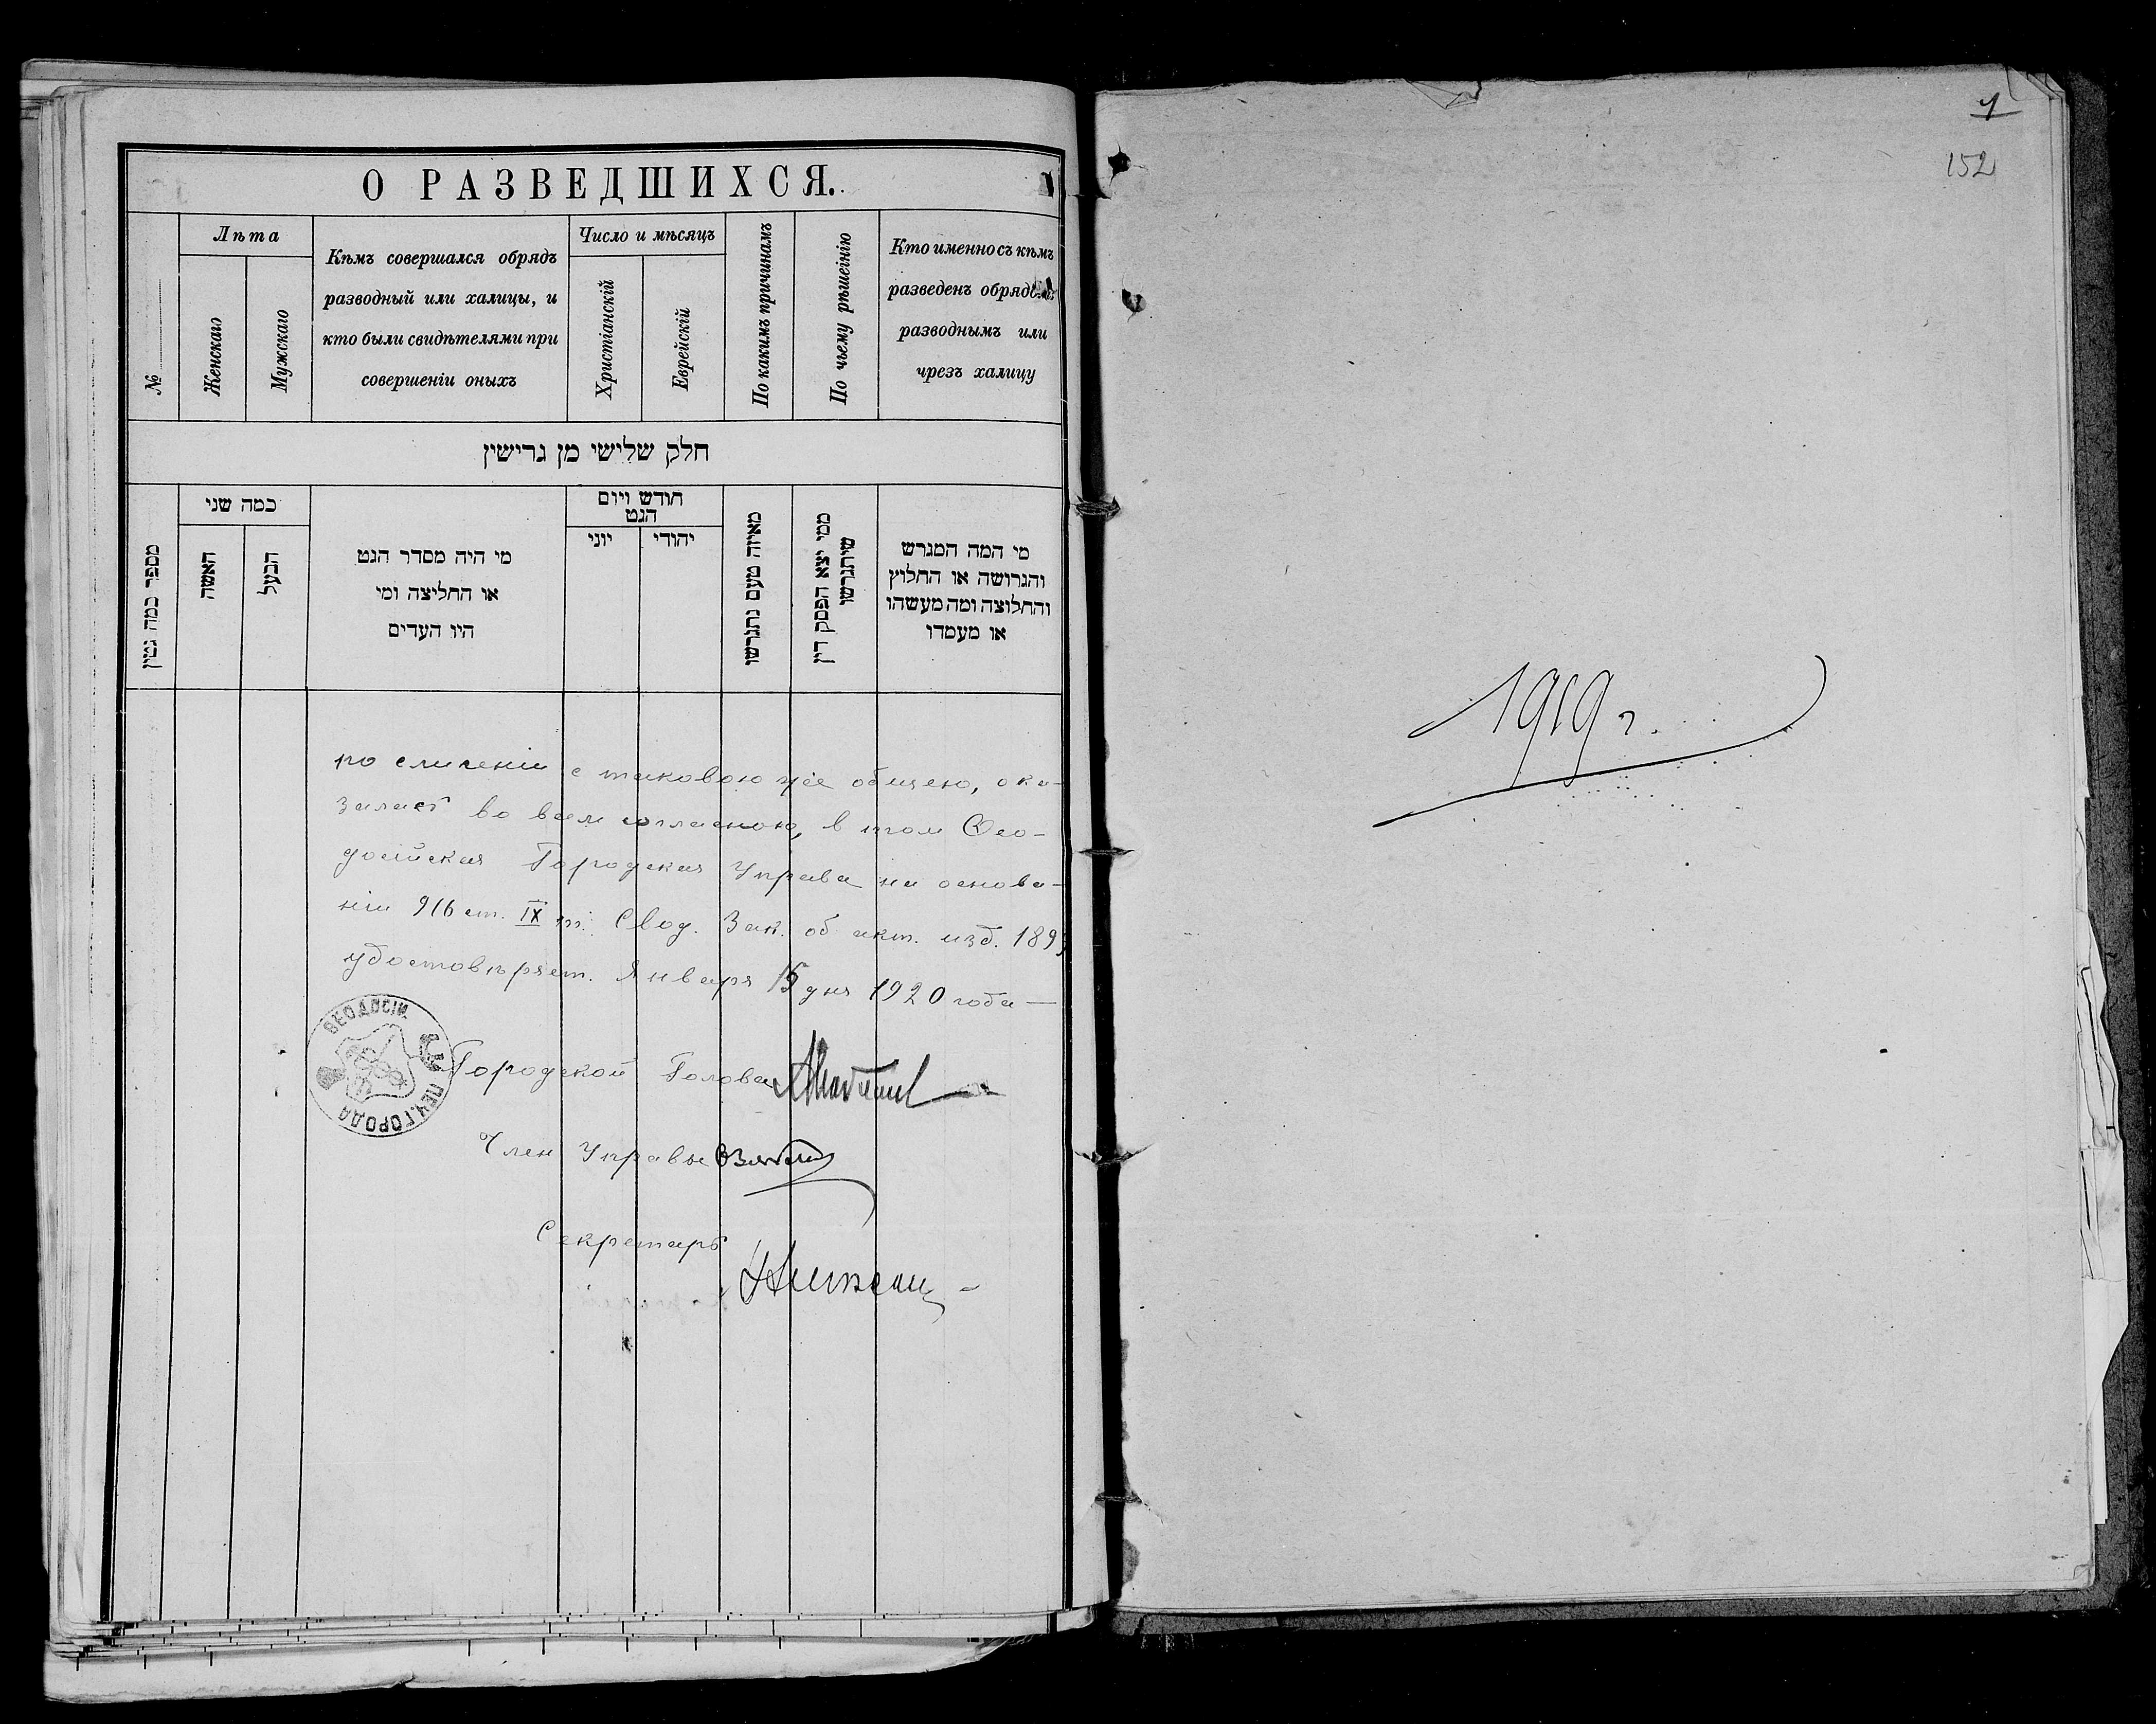 О РАЗВЕДШИХСЯ.
№
Лѣта
Женскаго
Мужскаго
Кѣмъ совершался обрядъ
разводный или халицы, и
кто были свидѣтелями при
совершеніи оныхъ
Число и мѣсяцъ
Христіанскій
Еврейскій
По какимъ причинамъ
По чьему рѣшенію
Кто именно съ кѣмъ
разведенъ обрядомъ
разводнымъ или
чрезъ халицу
חלק שלישי מן גרישין
מספר כמה גטין
כמה שני
האשה
הבעל
מי היה מסדר הגט
או החליצה ומי
היו העדים
חודש ויום
הגט
יוני
יהודי
מאיזה טעם נתגרשו
ממי יצא הפסק דין
שיתגרשו
מי המה המגרש
והגרושה או החלוץ
והחלוצה ומה מעשהו
או מעמדו
по сличеніи с таковою же общею, ока-
залась во всем согласною, в том Ѳео-
досійская Городская Управа на основа-
ніи 916 ст. IX т. Свод. Зак. об акт. изд. 189
удостовѣряет. Января 15 дня 1920 года —
ѲЕОДОСІИ
ПЕЧ. ГОРОДА
Городской Голова
Член Управы
Секретарь
1
152
1919 г.